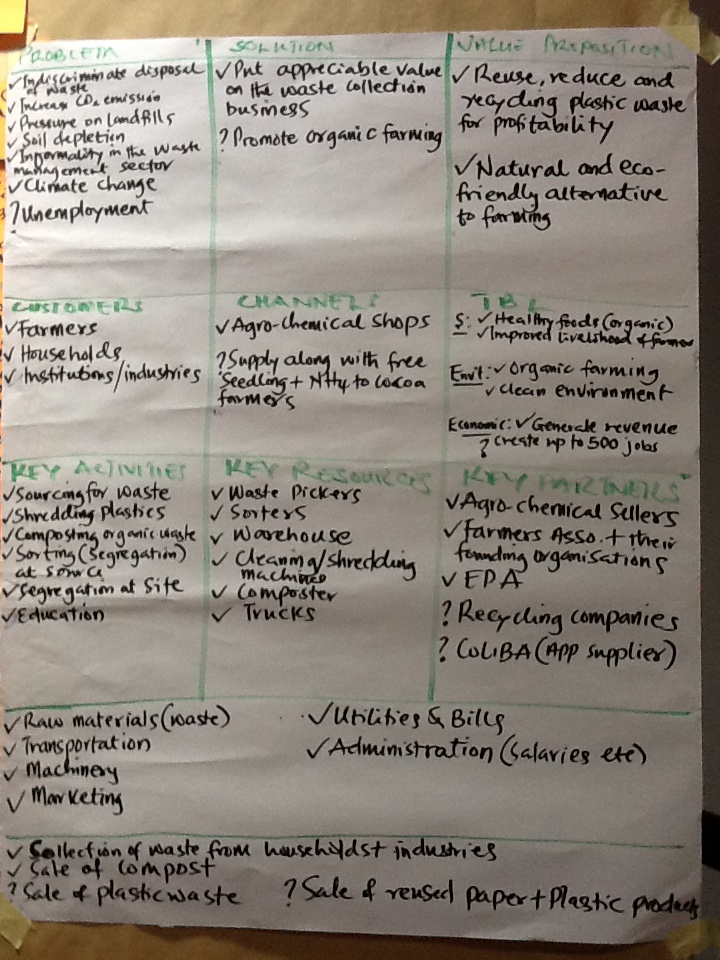 PROBLEM
✓ Indiscriminate disposal
of waste
✓ Increase CO2 emission
✓ Pressure on landfills
✓ Soil depletion
✓ Informality in the waste
management sector
✓ Climate change
? Unemployment
SOLUTION
✓ Put appreciable value
on the waste collection
business
? Promote organic farming
VALUE PROPOSITION
✓ Reuse, reduce and
recycling plastic waste
for profitability
✓ Natural and eco-
friendly alternative
to farming
CUSTOMERS
✓ Farmers
✓ Households
✓ Institutions/industries
CHANNELS
✓ Agro-chemical shops
? Supply along with free
Seedling + to cocoa
farmers
TBL
S: ✓ Healthy foods (organic)
✓ Improved livelihood of farmer
Env't: ✓ Organic farming
✓ clean environment
Economic: ✓ Generate revenue
? create up to 500 jobs
KEY ACTIVITIES
✓ Sourcing for waste
✓ Shredding plastics
✓ Composting organic waste
✓ Sorting (Segregation)
at source
✓ Segregation at Site
✓ Education
KEY RESOURCES
✓ Waste Pickers
✓ Sorters
✓ Warehouse
✓ Cleaning/shredding
machines
✓ Composter
✓ Trucks
KEY PARTNERS
✓ Agro-chemical Sellers
✓ Farmers Asso. + their
founding organisations
✓ EPA
? Recycling companies
? COLIBA (App supplier)
✓ Raw materials (waste)
✓ Transportation
✓ Machinery
✓ Marketing
✓ Utilities & Bills
✓ Administration (salaries etc)
✓ Collection of waste from households + industries
✓ Sale of compost
? Sale of plastic waste
? Sale of reused paper + Plastic products